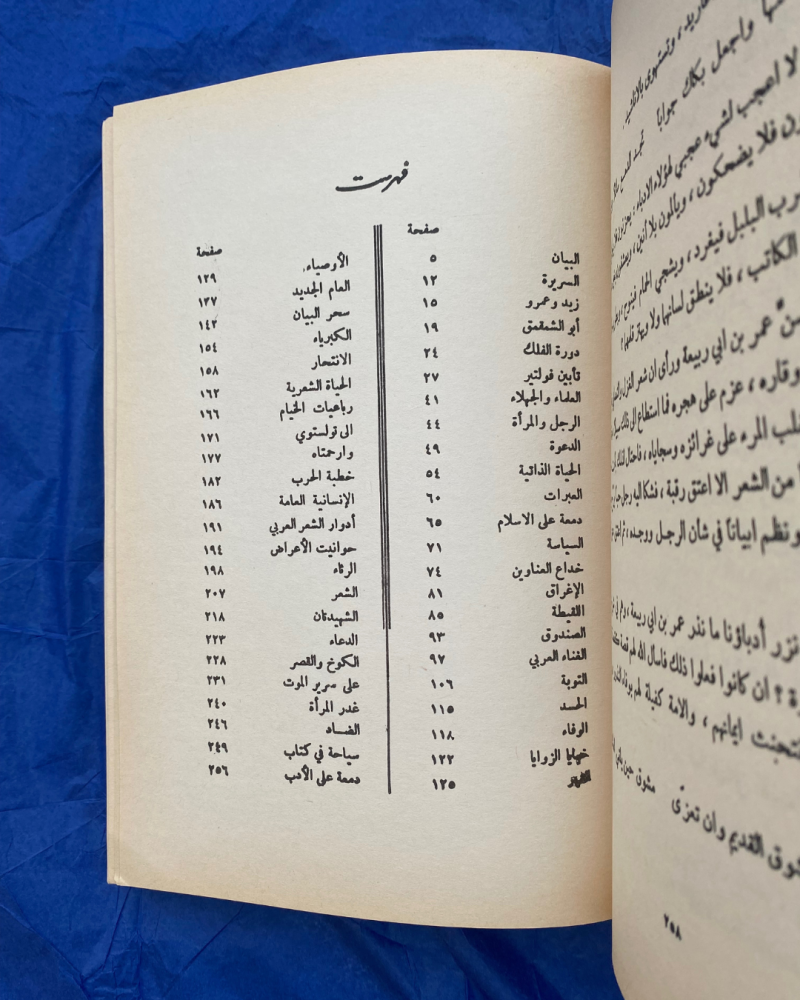 فهرست
صفحة
البيان ٥
السريرة ١٢
زيد وعمرو ١٥
أبو الشمقمق ١٩
دورة الفلك ٢٤
تأبين فولتير ٢٧
العلماء والجهلاء ٤١
الرجل والمرأة ٤٤
الدعوة ٤٩
الحياة الذاتية ٥٤
العبرات ٦٠
دمعة على الاسلام ٦٥
السياسة ٧١
خداع العناوين ٧٤
الإغراق ٨١
اللقيطة ٨٥
الصندوق ٩٣
الغناء العربي ٩٧
التوبة ١٠٦
الحسد ١١٥
الوفاء ١١٨
خبايا الزوايا ١٢٢
١٢٥
صفحة
الأوصياء ١٢٩
العام الجديد ١٣٧
سحر البيان ١٤٢
الكبرياء ١٥٤
الانتحار ١٥٨
الحياة الشعرية ١٦٢
رباعيات الخيام ١٦٦
الى تولستوي ١٧١
وارحمتاه ١٧٧
خطبة الحرب ١٨٢
الإنسانية العامة ١٨٦
أدوار الشعر العربي ١٩١
حوانيت الأعراض ١٩٤
الرثاء ١٩٨
الشعر ٢٠٧
الشهيدتان ٢١٨
الدعاء ٢٢٣
الكوخ والقصر ٢٢٨
على سرير الموت ٢٣١
غدر المرأة ٢٤٠
الضاد ٢٤٦
سياحة في كتاب ٢٤٩
دمعة على الأدب ٢٥٦
واجعل بكاك جوابا
لا اعجب لشيء عجبي لهؤلاء الادباء
فلا يضحكون ، ويألمون بلا أنين
البلبل فيغرد ، ويشجي الحمام فينوح
الكاتب ، فلا ينطق لسانها ولا يهتز قلمها ؟
عمر بن ابي ربيعة ورأى ان شعر الغزل
وقاره ، عزم على هجره فما استطاع الى ذلك
المرء على غرائزه وسجاياه ، فاحتال لذلك
من الشعر الا اعتق رقبة ، فشكا اليه رجل
ونظم ابياتاً في شأن الرجل ووجده ، ثم
نزر أدباؤنا ما نذر عمر بن ابي ربيعة ، وهم في
؟ ان كانوا فعلوا ذلك فاسأل الله لهم
ايمانهم ، والامة كفيلة لهم
القديم وان تعزى
٢٥٨